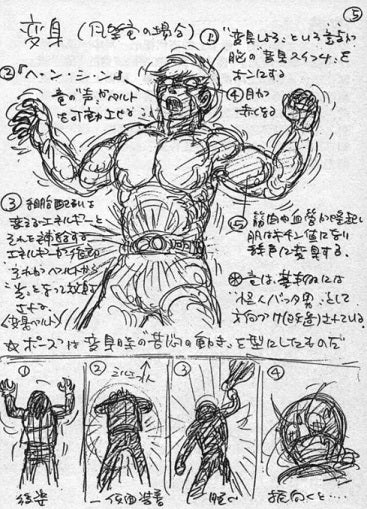 ⑤
変身 (月望竜の場合)
① "変身しよう"という意志が
脳の"変身スイッチ"を
オンにする
②『ヘ・ン・シ・ン』
竜の"声"がベルト
を可動させる
④ 目が
赤くなる
③ 細胞配列を
変えるエネルギーと
それを補給する
エネルギーが
それがベルトから
"光"となって放射
される
(変身ベルト)
⑤ 筋肉や血管が隆起し
肌はキチン値になり
緑色に変身する。
"怪人バッタ男"として
方向づけ されている
☆ポーズは変身時の苦悶の動きを型にしたものだ
① ② ③ ④
後姿
仮面装着
振向くと‥‥